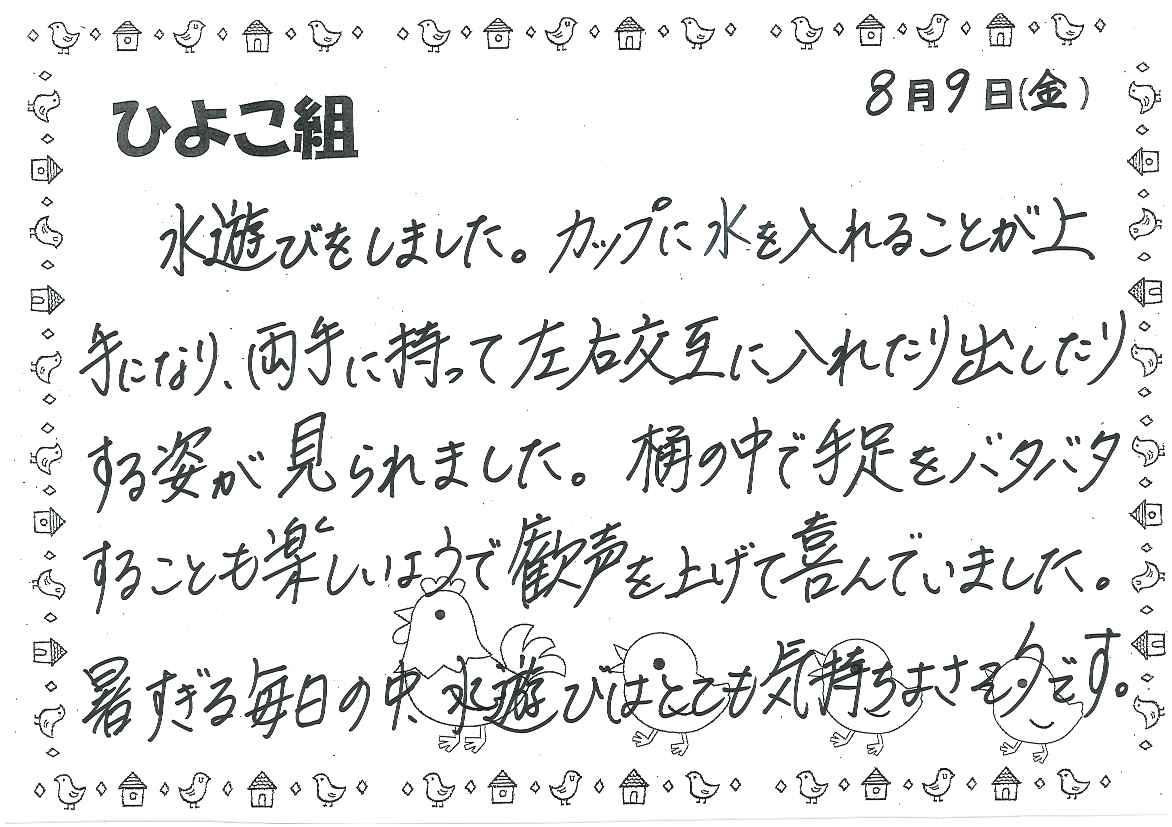 8月9日(金)
ひよこ組
水遊びをしました。カップに水を入れることが上
手になり、両手に持って左右交互に入れたり出したり
する姿が見られました。桶の中で手足をバタバタ
することも楽しいようで歓声を上げて喜んでいました。
暑すぎる毎日の中、水遊びはとても気持ちよさそうです。